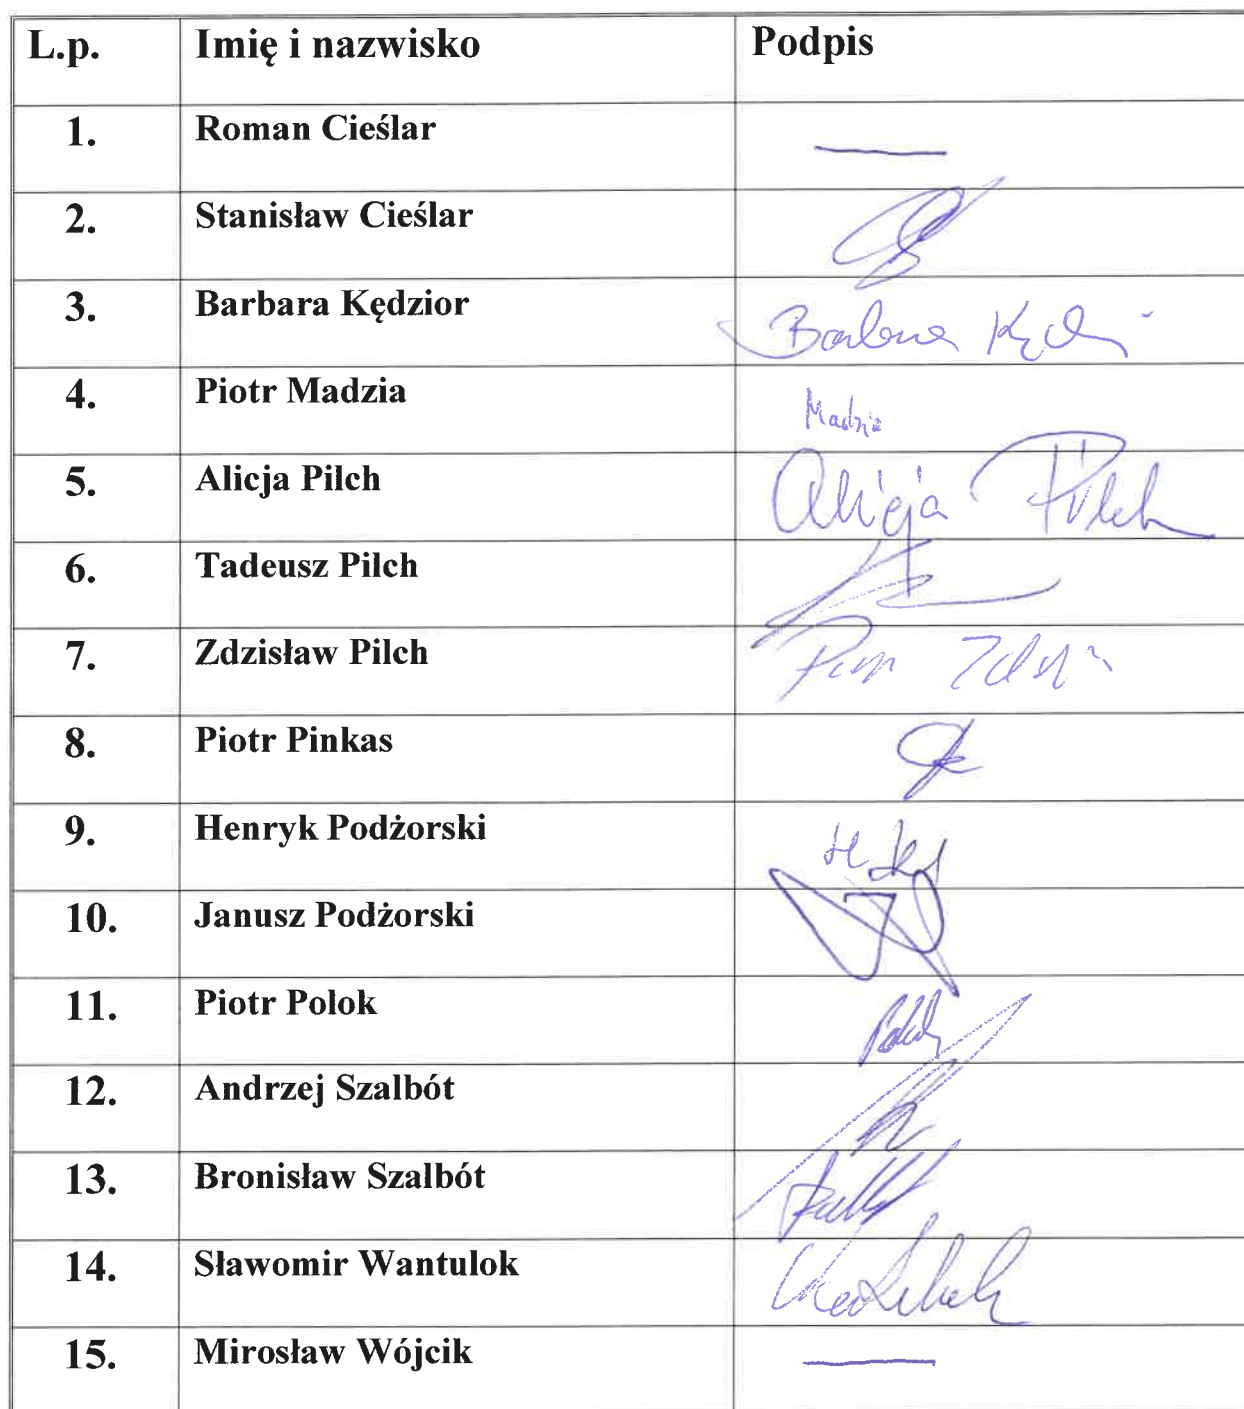 L.p. Imię i nazwisko Podpis
1. Roman Cieślar
2. Stanisław Cieślar
3. Barbara Kędzior Barbara
4. Piotr Madzia Madzia
5. Alicja Pilch Alicja Pilch
6. Tadeusz Pilch
7. Zdzisław Pilch
8. Piotr Pinkas
9. Henryk Podżorski
10. Janusz Podżorski
11. Piotr Polok
12. Andrzej Szalbót
13. Bronisław Szalbót
14. Sławomir Wantulok
15. Mirosław Wójcik